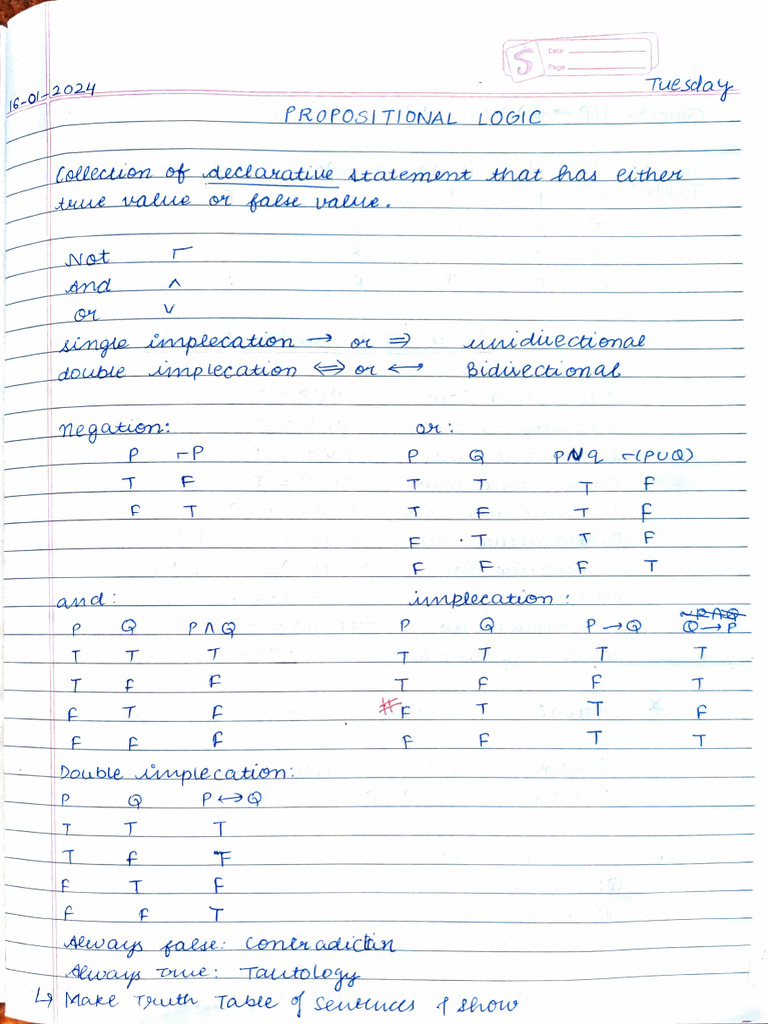 S Date
Page
16-01-2024 Tuesday
PROPOSITIONAL LOGIC
Collection of declarative statement that has either
true value or false value.
Not ⌐
And ∧
or ∨
single implecation → or ⇒ unidirectional
double implecation ⇔ or ↔ Bidirectional
Negation: or:
P ⌐P P Q P∨q ⌐(P∪Q)
T F T T T F
F T T F T F
F T T F
F F F T
and: implecation:
P Q P∧Q P Q P→Q ~P∧Q Q→P
T T T T T T T
T F F T F F T
F T F # F T T F
F F F F F T T
Double implecation:
P Q P↔Q
T T T
T F F
F T F
F F T
Always false: Contradictin
Always true: Tautology
↳ Make Truth Table of Sentences & show